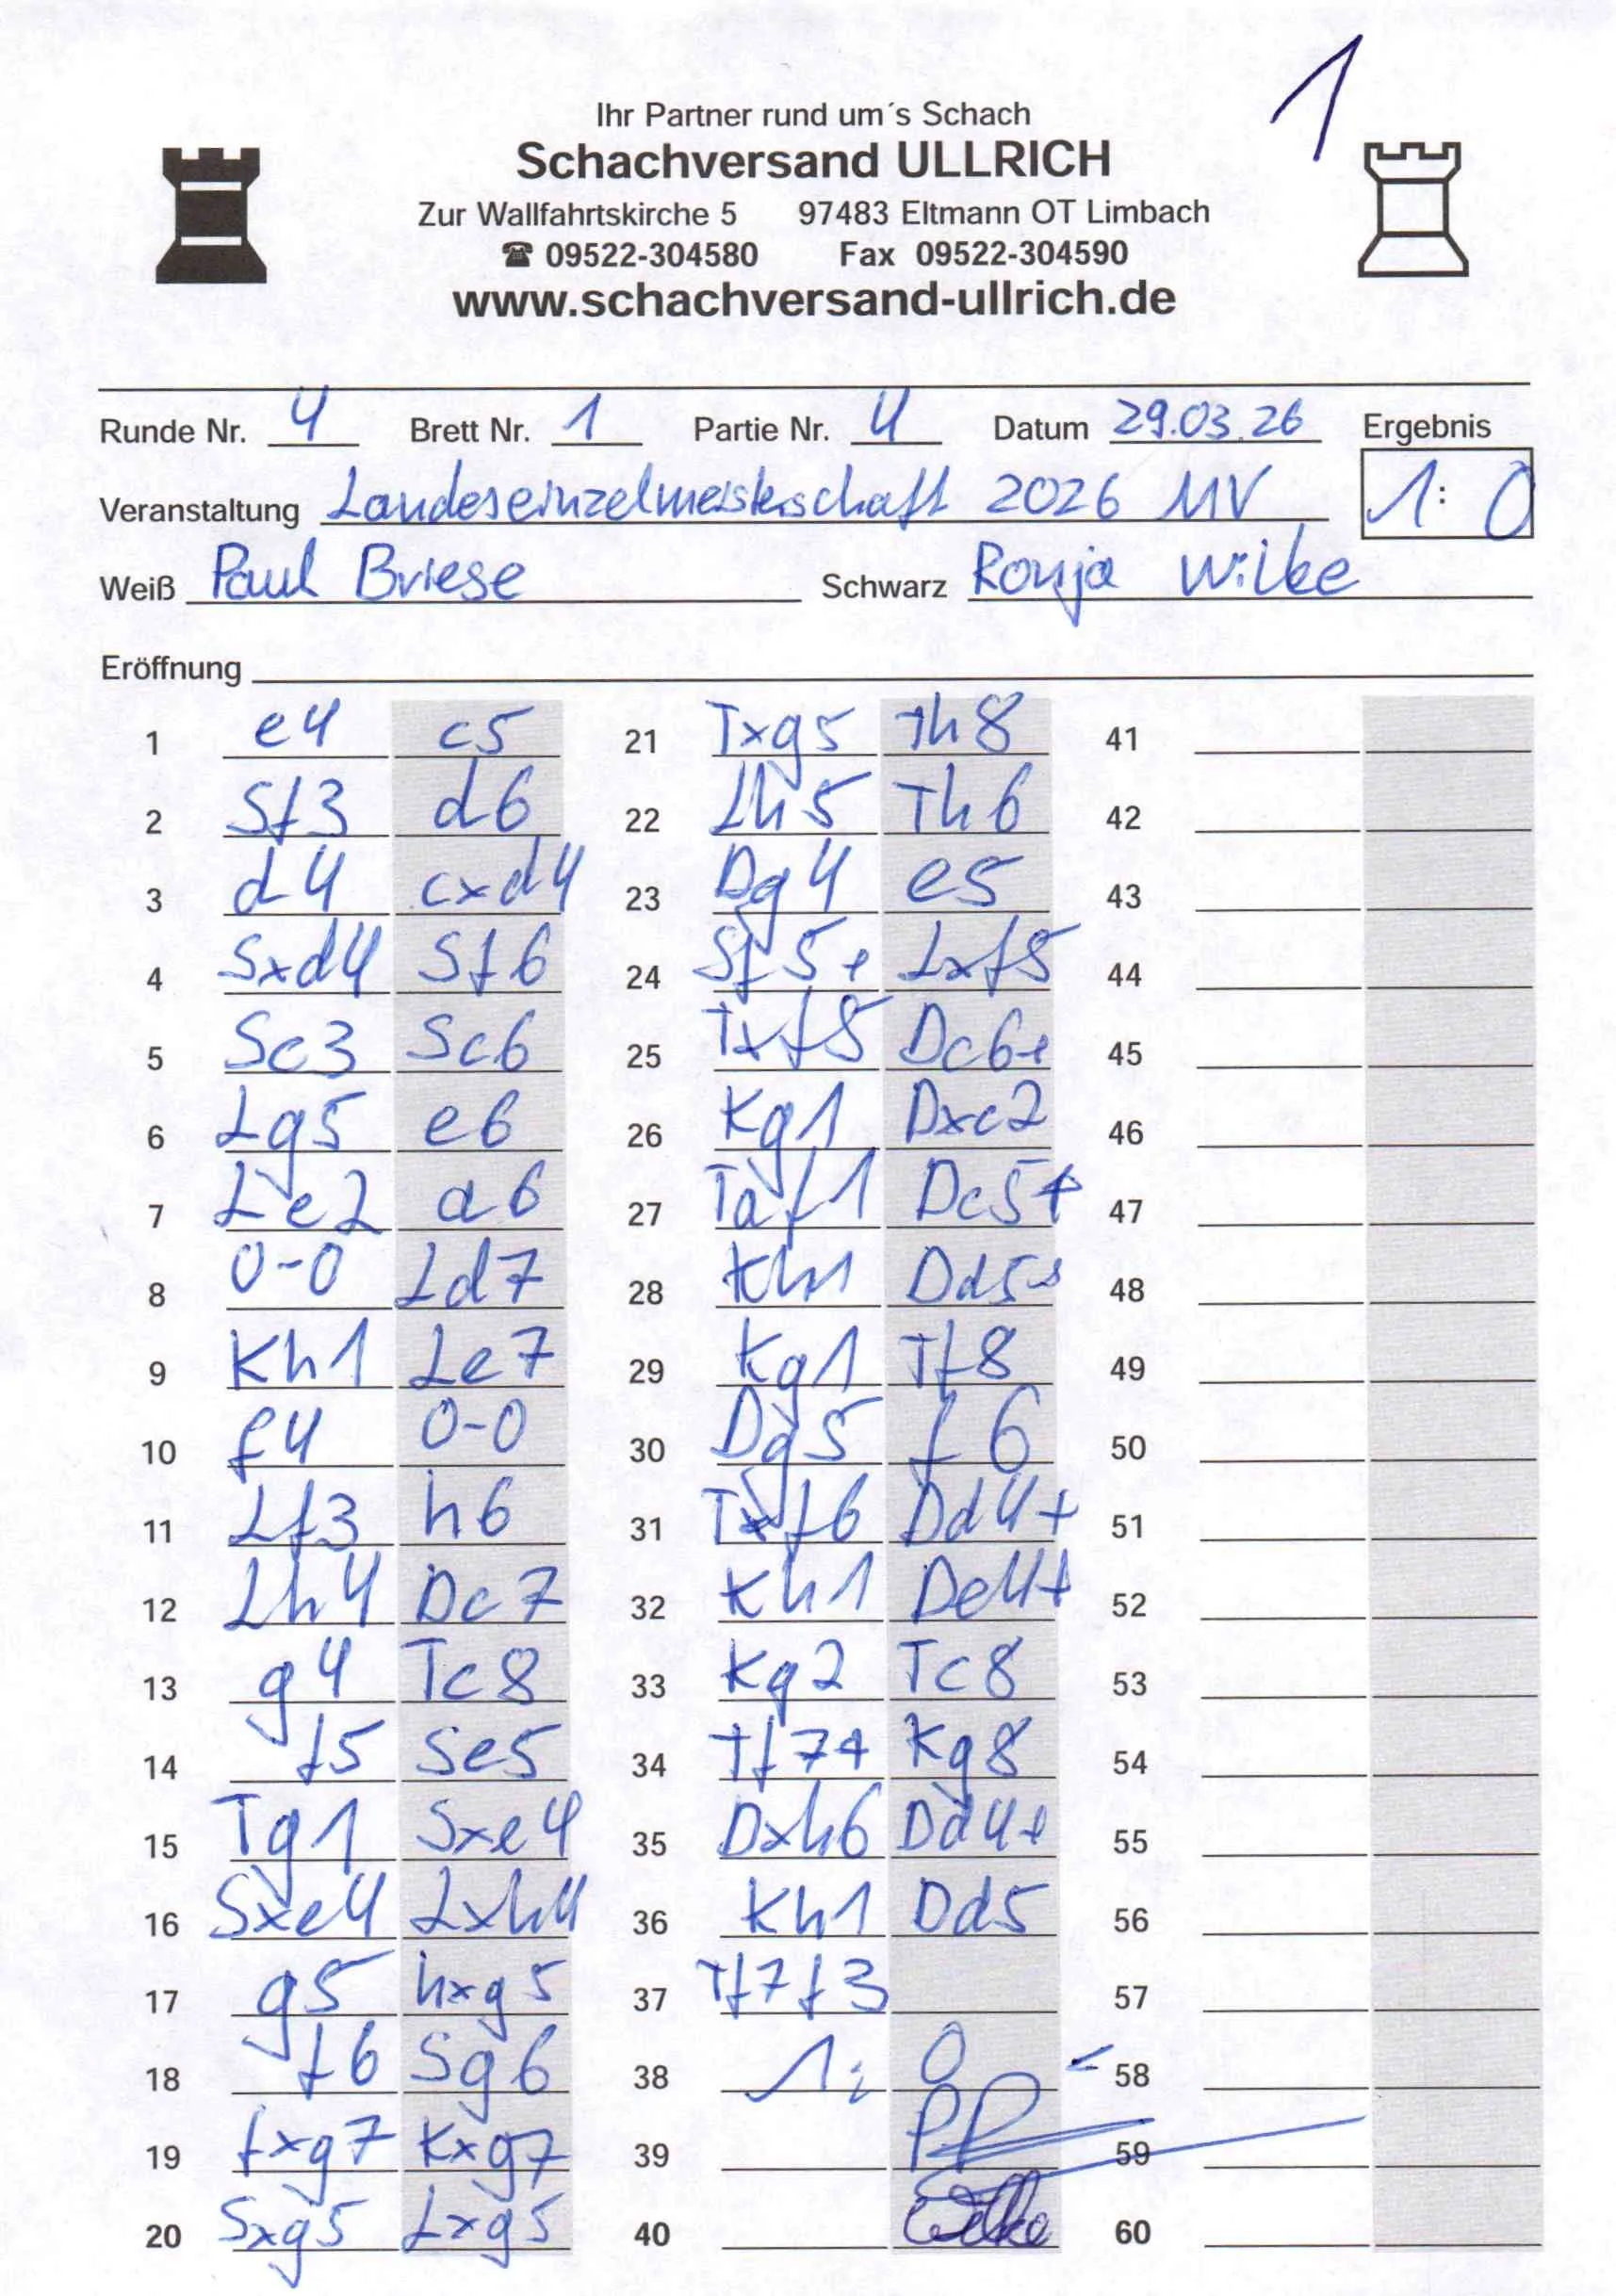 1
Ihr Partner rund um´s Schach
Schachversand ULLRICH
Zur Wallfahrtskirche 5 97483 Eltmann OT Limbach
☎ 09522-304580 Fax 09522-304590
www.schachversand-ullrich.de
Runde Nr. 4 Brett Nr. 1 Partie Nr. 4 Datum 29.03.26 Ergebnis
Veranstaltung Landeseinzelmeisterschaft 2026 MV 1:0
Weiß Paul Briese Schwarz Ronja Wilke
Eröffnung
1 e4 c5
2 Sf3 d6
3 d4 cxd4
4 Sxd4 Sf6
5 Sc3 Sc6
6 Lg5 e6
7 Le2 a6
8 0-0 Ld7
9 Kh1 Le7
10 f4 0-0
11 Lf3 h6
12 Lh4 Dc7
13 g4 Tc8
14 f5 Se5
15 Tg1 Sxe4
16 Sxe4 Lxh4
17 g5 hxg5
18 f6 Sg6
19 fxg7 Kxg7
20 Sxg5 Lxg5
21 Txg5 Th8
22 Lh5 Th6
23 Dg4 e5
24 Sf5+ Lxf5
25 Txf5 Dc6+
26 Kg1 Dxc2
27 Taf1 Dc5+
28 Kh1 Dd5+
29 Kg1 Tf8
30 Dg5 f6
31 Txf6 Dd4+
32 Kh1 De4+
33 Kg2 Tc8
34 Tf7+ Kg8
35 Dxh6 Dd4+
36 Kh1 Dd5
37 Tf7f3
38 1: 0
39
40 Wilke
41
42
43
44
45
46
47
48
49
50
51
52
53
54
55
56
57
58
59
60